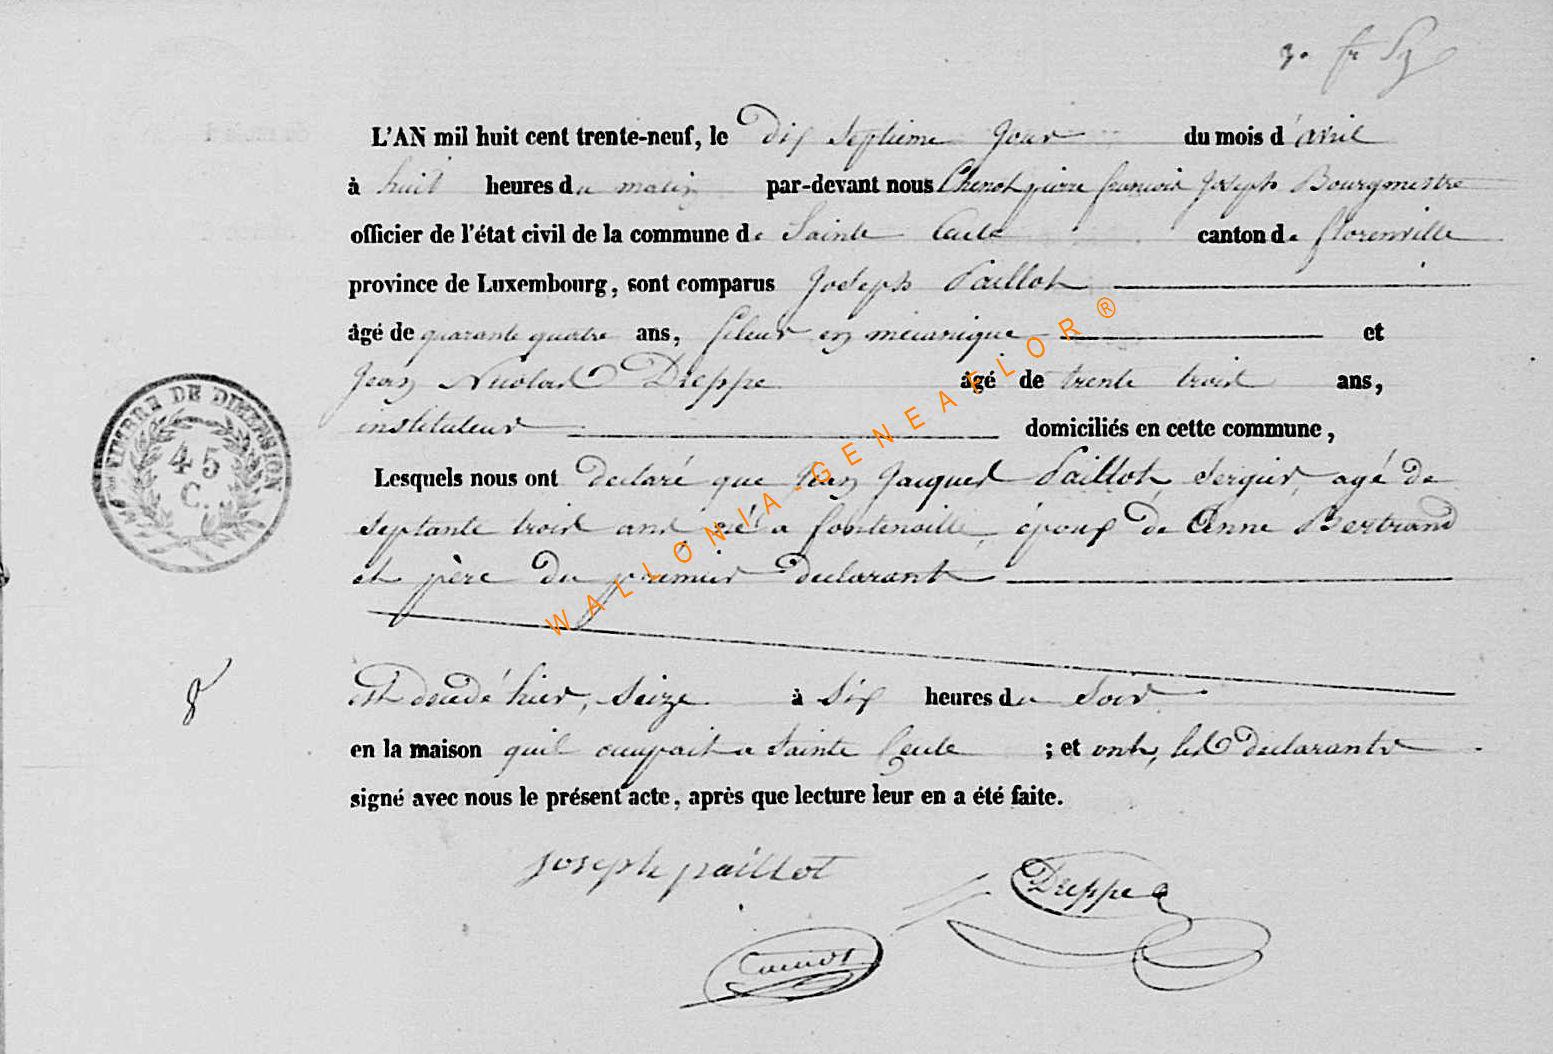 3. fr
L'AN mil huit cent trente-neuf, le Dix Septieme Jour du mois d'avril
à huit heures du matin par-devant nous Chenot pierre francois Joseph Bourgmestre
officier de l'état civil de la commune de Sainte Cecile canton de florenville
province de Luxembourg, sont comparus Joseph Paillot
âgé de quarante quatre ans, fileur en mécanique et
Jean Nicolas Dreppe âgé de trente trois ans,
instituteur domiciliés en cette commune,
Lesquels nous ont declaré que Jean Jacques Paillot Sergier, agé de
septante trois ans né a fontenoille, époux de Anne Bertrand
et père du premier declarant
est decedé hier, seize à six heures du soir
en la maison quil occupait a Sainte Cecile ; et ont, les declarants
signé avec nous le présent acte, après que lecture leur en a été faite.
TIMBRE DE DIMENSION
45
C.
8
joseph paillot
Dreppe
Chenot
WALLONIA-GENEAFLOR®